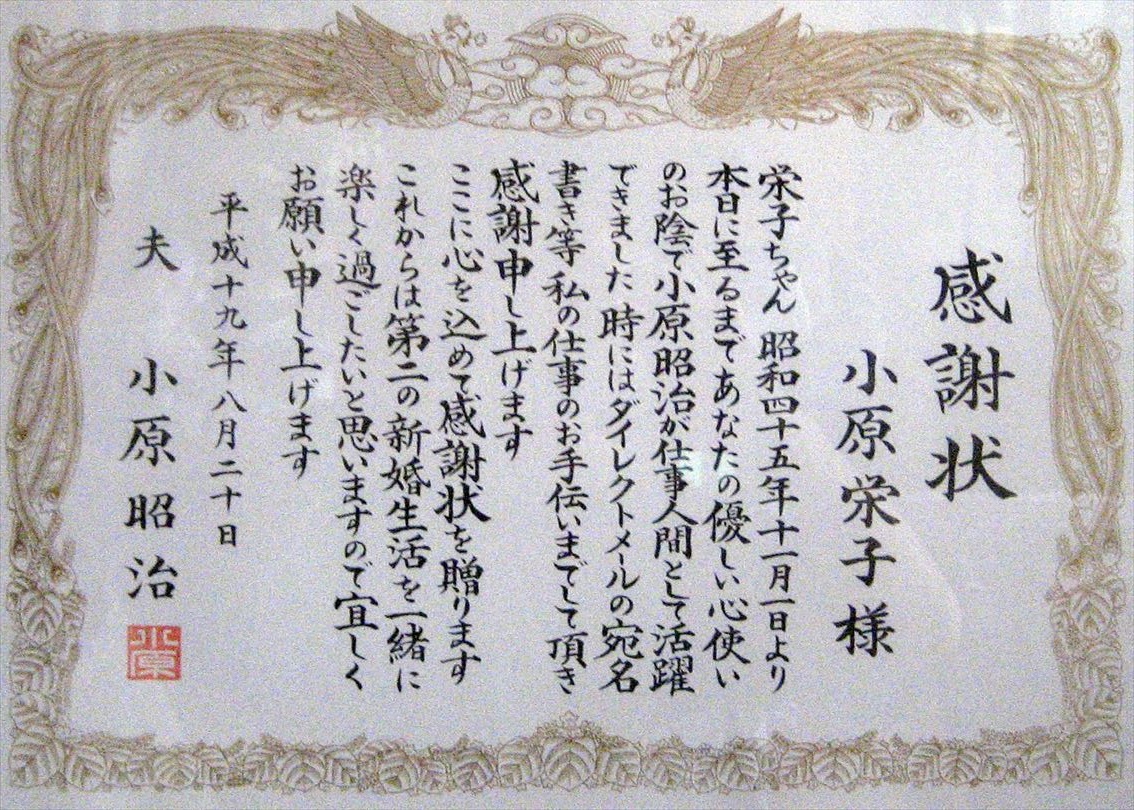 感謝状
小原栄子様
栄子ちゃん 昭和四十五年十一月一日より
本日に至るまであなたの優しい心使い
のお陰で小原昭治が仕事人間として活躍
できました 時にはダイレクトメールの宛名
書き等 私の仕事のお手伝いまでして頂き
感謝申し上げます
ここに心を込めて感謝状を贈ります
これからは第二の新婚生活を一緒に
楽しく過ごしたいと思いますので宜しく
お願い申し上げます
平成十九年八月二十日
夫 小原昭治
小原